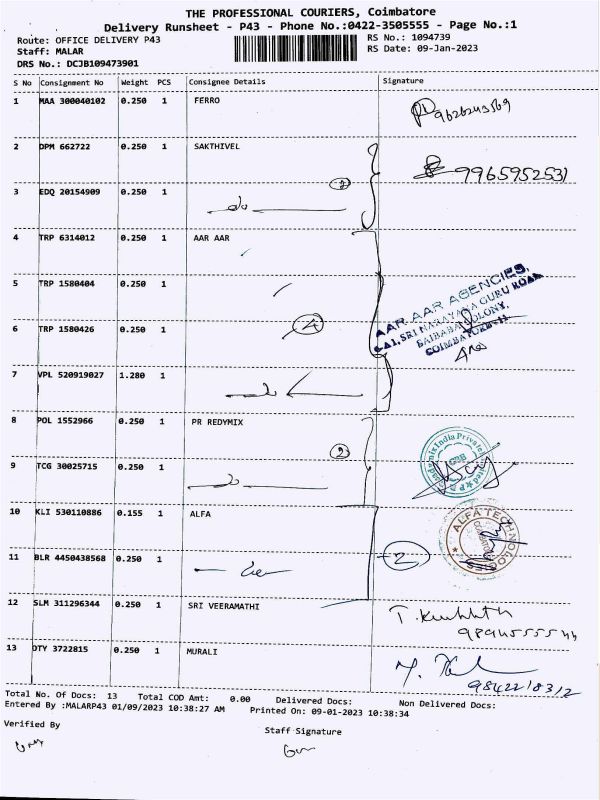 THE PROFESSIONAL COURIERS, Coimbatore
Delivery Runsheet - P43 - Phone No.:0422-3505555 - Page No.:1
Route: OFFICE DELIVERY P43
RS No.: 1094739
Staff: MALAR
RS Date: 09-Jan-2023
DRS No.: DCJB109473901
S No Consignment No Weight PCS Consignee Details Signature
1 MAA 300040102 0.250 1 FERRO
9626243569
2 DPM 662722 0.250 1 SAKTHIVEL
9965952531
3 EDQ 20154909 0.250 1 do 2
4 TRP 6314012 0.250 1 AAR AAR
5 TRP 1580404 0.250 1
AAR AAR AGENCIES,
SRI NARAYANA GURU ROAD
SAIBABA COLONY,
6 TRP 1580426 0.250 1 4
COIMBATORE-11
7 VPL 520919027 1.280 1
8 POL 1552966 0.250 1 PR REDYMIX
2
9 TCG 30025715 0.250 1
10 KLI 530110886 0.155 1 ALFA
ALFA TECHNOLOGIES
11 BLR 4450438568 0.250 1 2
12 SLM 311296344 0.250 1 SRI VEERAMATHI
13 DTY 3722815 0.250 1 MURALI
Total No. Of Docs: 13 Total COD Amt: 0.00 Delivered Docs: Non Delivered Docs:
Entered By :MALARP43 01/09/2023 10:38:27 AM Printed On: 09-01-2023 10:38:34
Verified By
Staff Signature